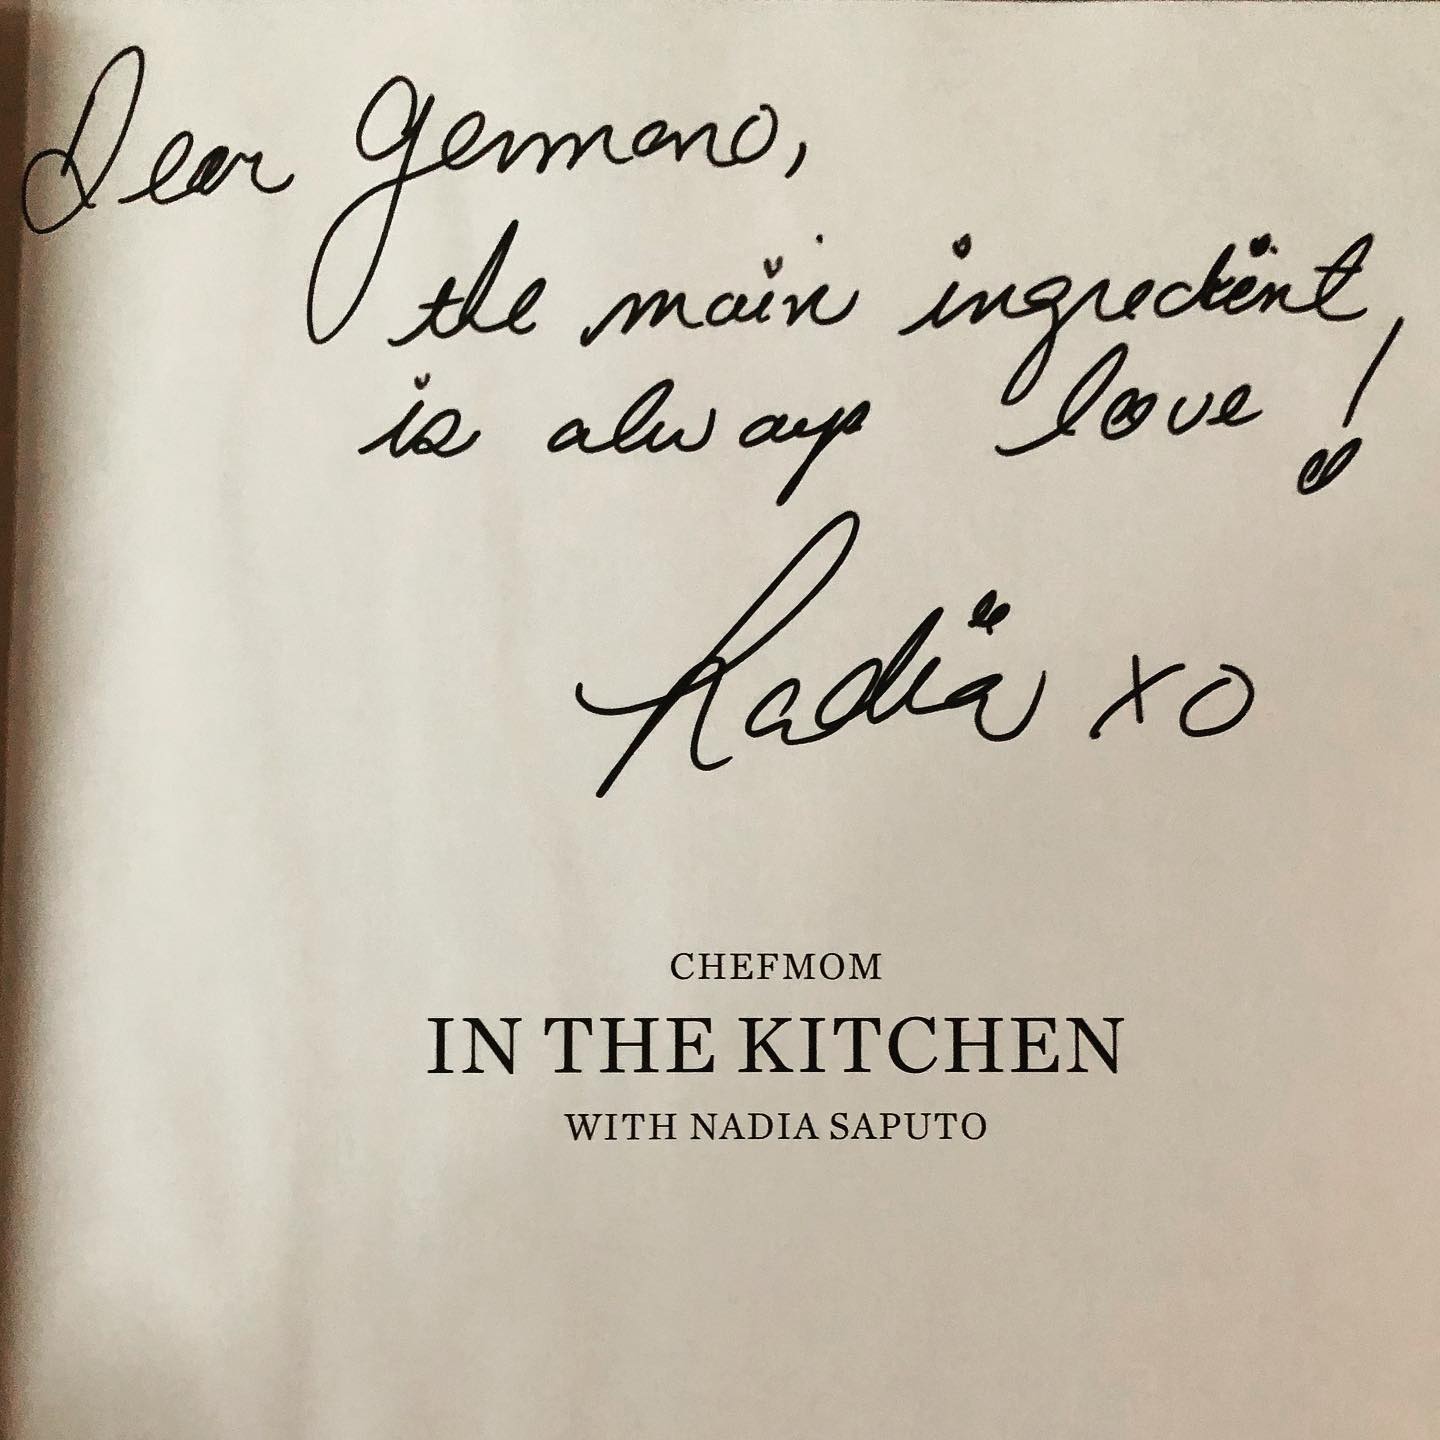 Dear Germano,
the main ingredient
is always love!
Nadia xo
CHEFMOM
IN THE KITCHEN
WITH NADIA SAPUTO